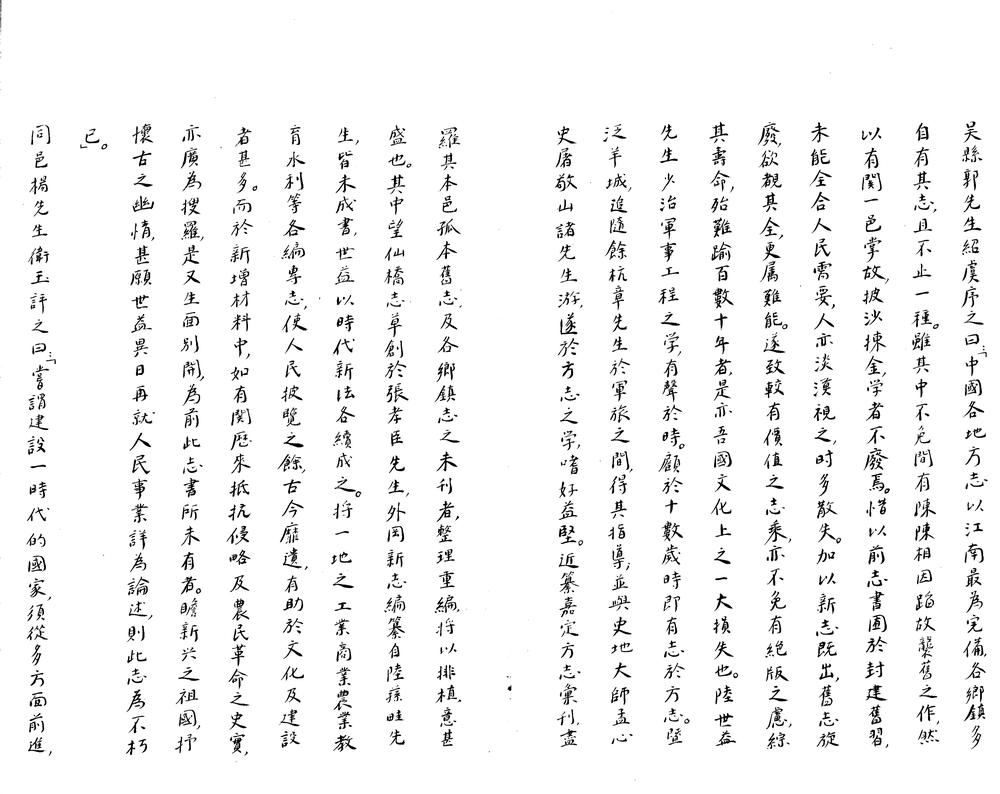 吴縣郭先生紹虞序之曰:「中國各地方志以江南最為完備,各鄉鎮多
自有其志,且不止一種。雖其中不免間有陳陳相因蹈故襲舊之作,然
以有関一邑掌故,披沙揀金,学者不廢焉。惜以前志書囿於封建舊習,
未能全合人民需要,人亦淡漠視之,时多散失。加以新志既出,舊志旋
廢,欲覩其全,更属難能。遂致較有價值之志乘,亦不免有絕版之慮,綜
其壽命,殆難踰百數十年者,是亦吾國文化上之一大損失也。陸世益
先生少治軍事工程之学,有聲於時。顧於十數歲時即有志於方志。暨
泛羊城,追隨餘杭章先生於軍旅之間,得其指導,並與史地大師孟心
史屠敬山諸先生游,遂於方志之学,嗜好益堅。近纂嘉定方志彙刊,盡
羅其本邑孤本舊志,及各鄉鎮志之未刊者,整理重編,将以排植,意甚
盛也。其中望仙橋志草創於張孝臣先生,外岡新志編纂自陸㻏畦先
生,皆未成書,世益以時代新法各續成之。将一地之工業商業農業教
育水利等各編專志,使人民披覽之餘,古今靡遺,有助於文化及建設
者甚多。而於新增材料中,如有関歷來抵抗侵略及農民革命之史實,
亦廣為搜羅,是又生面别開,為前此志書所未有者。瞻新兴之祖國,抒
懷古之幽情,甚願世益異日再就人民事業詳為論述,則此志為不朽
已。」
同邑楊先生衛玉評之曰:「嘗謂建設一時代的國家,須從多方面前進,